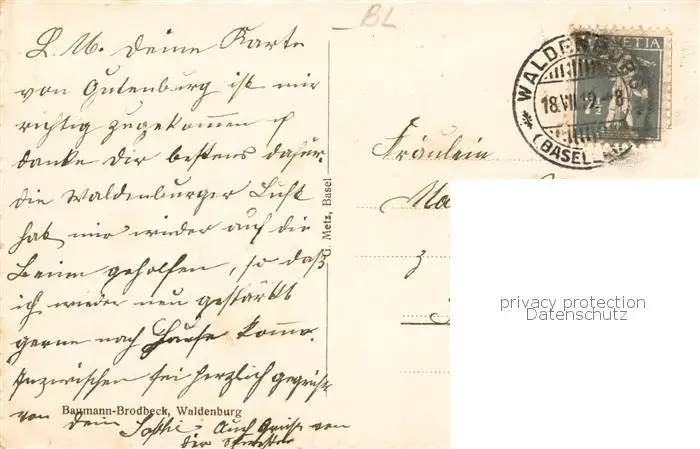 BL
L. M. Deine Karte
von Gutenburg ist mir
richtig zugekommen &
danke Dir bestens dafür.
Die Waldenburger Luft
hat mir wieder auf die
Beine geholfen, so daß
ich wieder neu gestärkt
gerne nach Hause komme.
Inzwischen sei herzlich gegrüßt
von Dein Sophie. Auch Grüße von
der Schwester
Baumann-Brodbeck, Waldenburg
G. Metz, Basel
WALDENBURG
18.VII.12.-8
(BASEL
HELVETIA
7½
Fräulein
z
privacy protection
Datenschutz